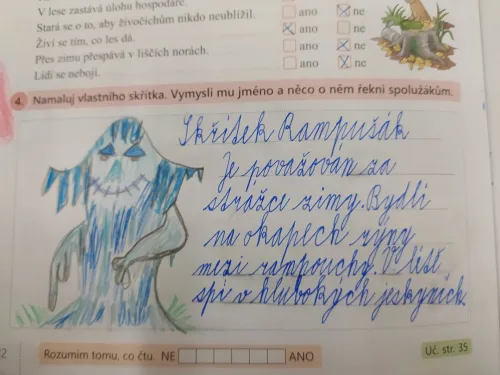 V lese zastává úlohu hospodáře. ano ne
Stará se o to, aby živočichům nikdo neublížil. ano ne
Živí se tím, co les dá. ano ne
Přes zimu přespává v liščích norách. ano ne
Lidí se nebojí.
4. Namaluj vlastního skřítka. Vymysli mu jméno a něco o něm řekni spolužákům.
Skřítek Rampušák
Je považován za
strážce zimy. Bydlí
na okapech rýny
mezi rampouchy. V létě
spí v hlubokých jeskyních.
Rozumím tomu, co čtu. NE ANO
Uč. str. 35